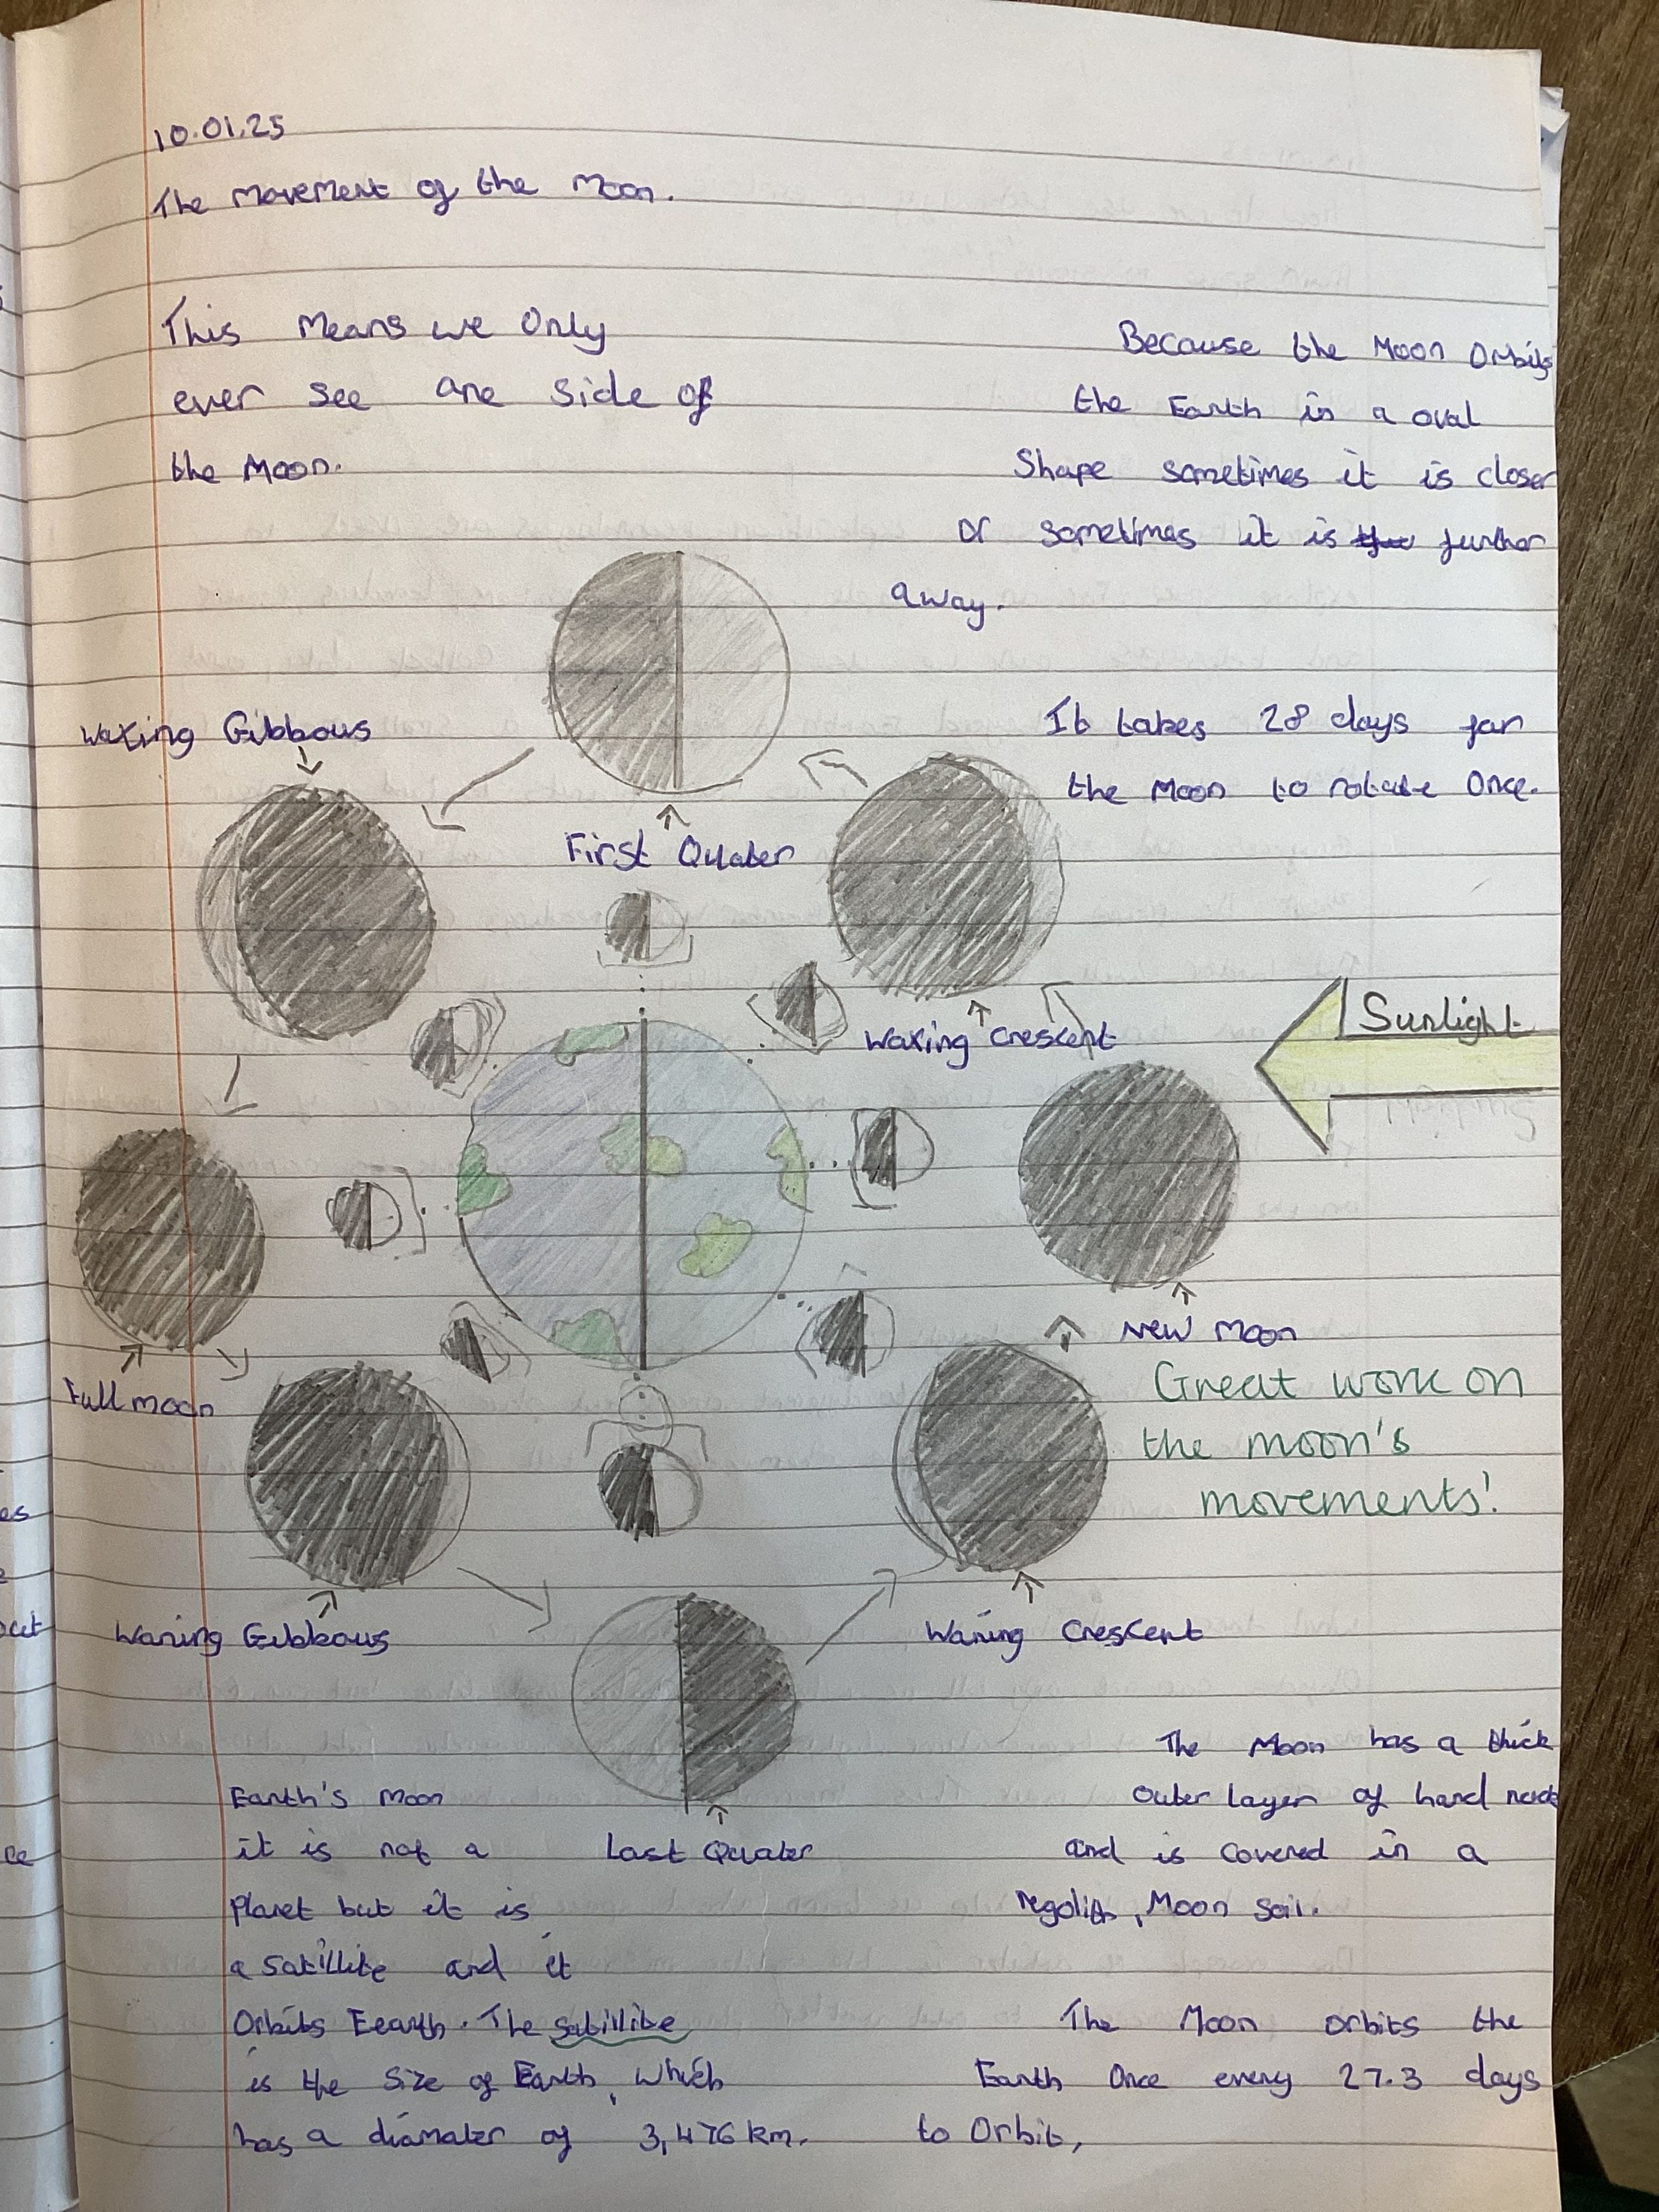 10.01.25
The Movement of the Moon.
This Means we Only
ever see one side of
the Moon.
Because the Moon Orbits
the Earth in a oval
Shape sometimes it is closer
or sometimes it is further
away.
It takes 28 days for
the Moon to rotate Once.
Waxing Gibbous
First Quater
Waxing Crescent
Sunlight
New Moon
Full moon
Great work on
the moon's
movements!
Waning Gibbous
Waning Crescent
Last Quater
Earth's Moon
it is not a
Planet but it is
a satillite and it
Orbits Eearth. The satillite
is the Size of Earth, which
has a diamater of 3,476 km.
The Moon has a thick
Outer layer of hard rock
and is covered in a
regolith, Moon Soil.
The Moon orbits the
Earth Once every 27.3 days
to Orbit,